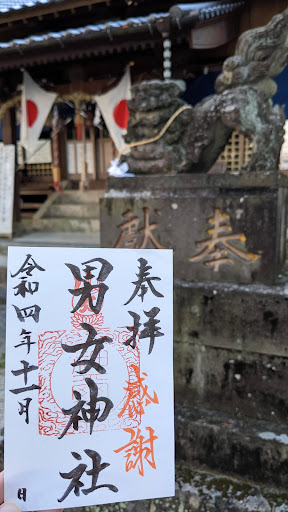 奉献
奉拝
感謝
男女神社
令和四年十一月 日